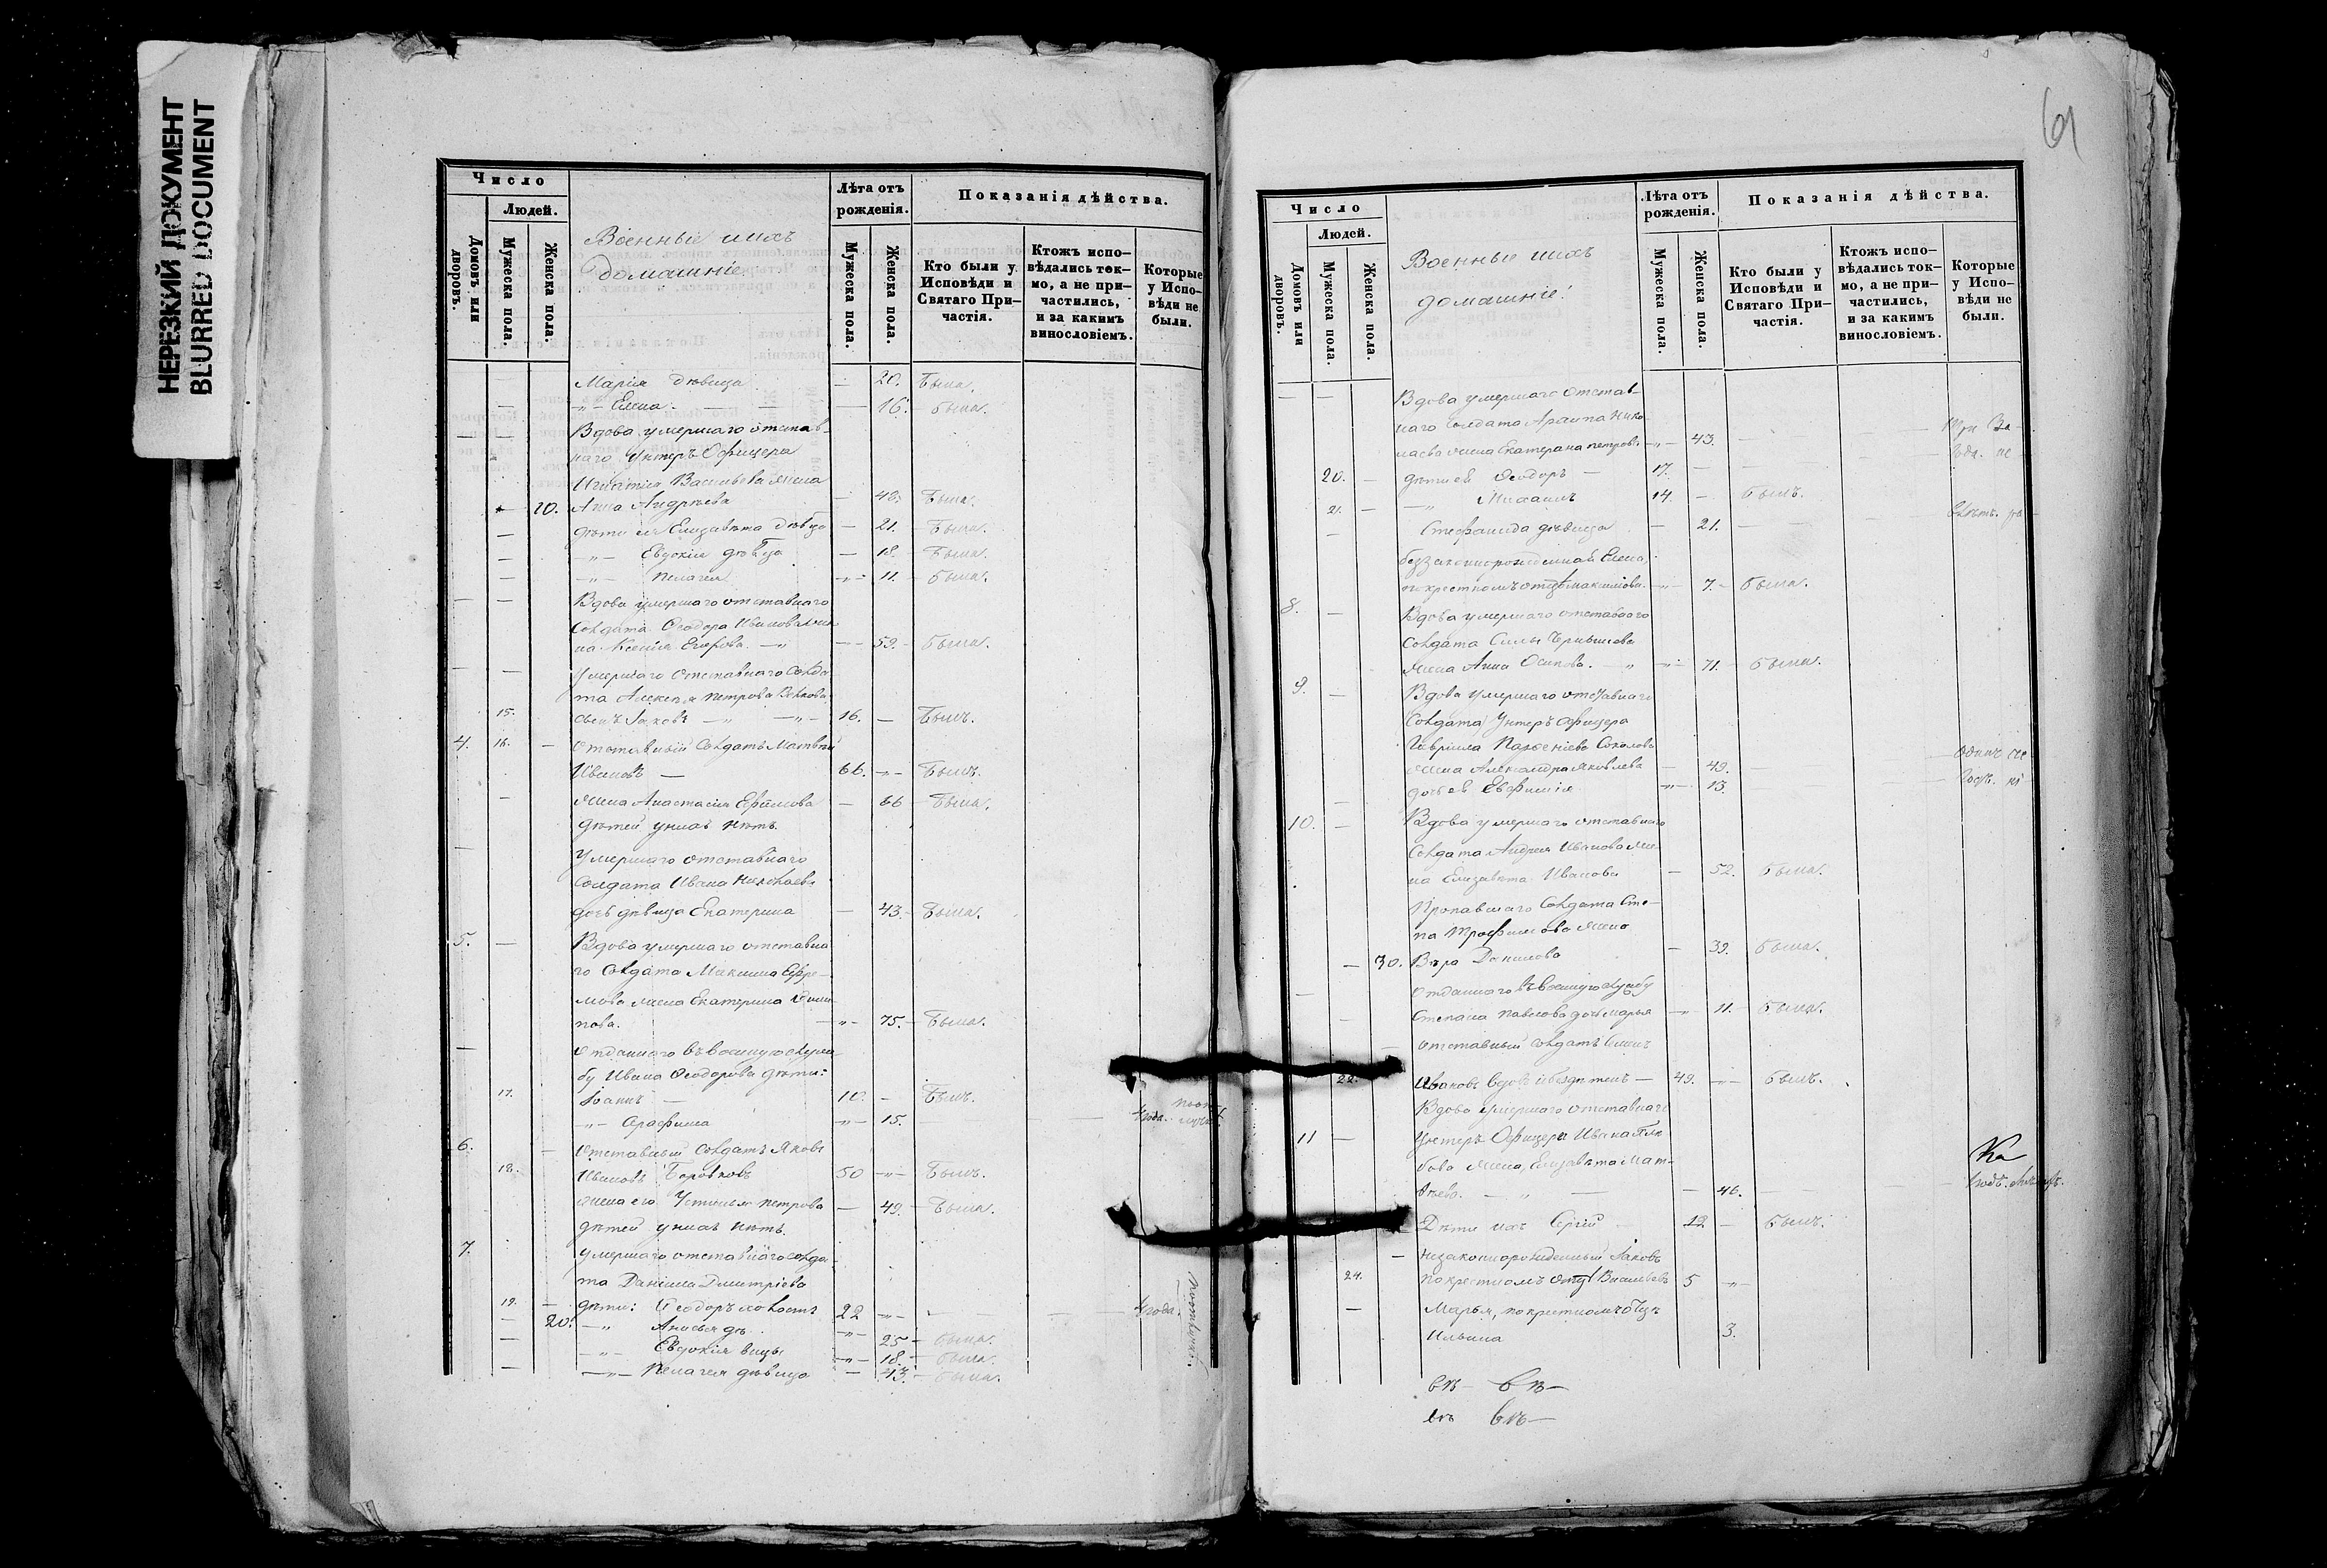 НЕРЕЗКИЙ ДОКУМЕНТ
BLURRED DOCUMENT
Число
Людей.
Домовъ или дворовъ.
Мужеска пола.
Женска пола.
Военные и ихъ
домашніе
Лѣта отъ рожденія.
Мужеска пола.
Женска пола.
Показанія дѣйства.
Кто были у Исповѣди и Святаго Причастія.
Ктожъ исповѣдались токмо, а не причастились, и за какимъ винословіемъ.
Которые у Исповѣди не были.
Марія дѣвица 20. Была.
Елена 16. была.
Вдова умершаго отстав-
наго Унтеръ Офицера
Игнатія Васильева жена
10. Анна Андрѣева 48. Была.
дѣти ея Елизавѣта дѣвица 21. Была.
Евдокія дѣвица 18. Была.
Пелагея 11. была.
Вдова умершаго отставнаго
Солдата Ѳеодора Иванова же
на Ксенія Егорова 59. Была.
Умершаго Отставнаго Солда
та Алексѣя Петрова
15. сынъ Іаковъ 16. Былъ.
4. 16. Отставный Солдатъ Матвѣй
Ивановъ 66. Былъ.
жена Анастасія Ефимова 66 Была.
дѣтей у нихъ нѣтъ.
Умершаго отставнаго
Солдата Ивана Николаева
дочь дѣвица Екатерина 43. Была.
5. Вдова умершаго отставна
го Солдата Максима Ефре-
мова жена Екатерина
пова. 75. Была.
Отданнаго въ военную служ
бу Ивана Ѳеодорова дѣти:
17. Іоаннъ 10. Былъ.
15.
6. Отставный Солдатъ Яковъ
18. Ивановъ Боровковъ 50 Былъ.
жена его Устинья Петрова 49. Была.
дѣтей у нихъ нѣтъ.
7. Умершаго отставнаго солда
та Даніила Дмитріева
19. дѣти: Ѳеодоръ холостъ 22 года.
20. Анисья дѣ 25 была.
Евдокія вицы 18. была.
Пелагея дѣвица 43. была.
61
Число
Людей.
Домовъ или дворовъ.
Мужеска пола.
Женска пола.
Военные и ихъ
домашніе
Лѣта отъ рожденія.
Мужеска пола.
Женска пола.
Показанія дѣйства.
Кто были у Исповѣди и Святаго Причастія.
Ктожъ исповѣдались токмо, а не причастились, и за какимъ винословіемъ.
Которые у Исповѣди не были.
Вдова умершаго Отстав-
наго Солдата Нико
лаева жена Екатерина Петрова 43.
20. дѣти ея Ѳеодоръ 17.
21. Михаилъ 14. Былъ.
Стефанида дѣвица 21.
беззаконнорожденная Елена,
по крестномъ отцѣ Максимова 7. Была.
8. Вдова умершаго отставного
Солдата Силы
жена Анна Осипова 71. Была.
9. Вдова умершаго отставнаго
Солдата Унтеръ офицера
Гавріила Парѳеніева Соколова
жена Александра Яковлева 49.
дочь ея Евфимія 13.
10. Вдова умершаго отставнаго
Солдата Андрея Иванова же
на Елизавѣта Иванова 52. Была.
Пропавшаго Солдата Сте-
па Трофимова жена
30. Вѣра Данилова 39. Была.
Отданнаго въ военную службу
Степана Павлова дочь Марья 11. Была.
Отставный Солдатъ
22. Ивановъ вдовъ и бездѣтенъ 49. Былъ.
Вдова умершаго отставнаго
11 Унтеръ Офицера Ивана
бова жена, Елизавѣта Мат-
вѣева 46.
Дѣти ихъ Сергій 12 Былъ.
Незаконнорожденный Іаковъ
24. по крестномъ отцѣ Васильевъ 5
Марья, по крестномъ отцѣ
Ильина 3.